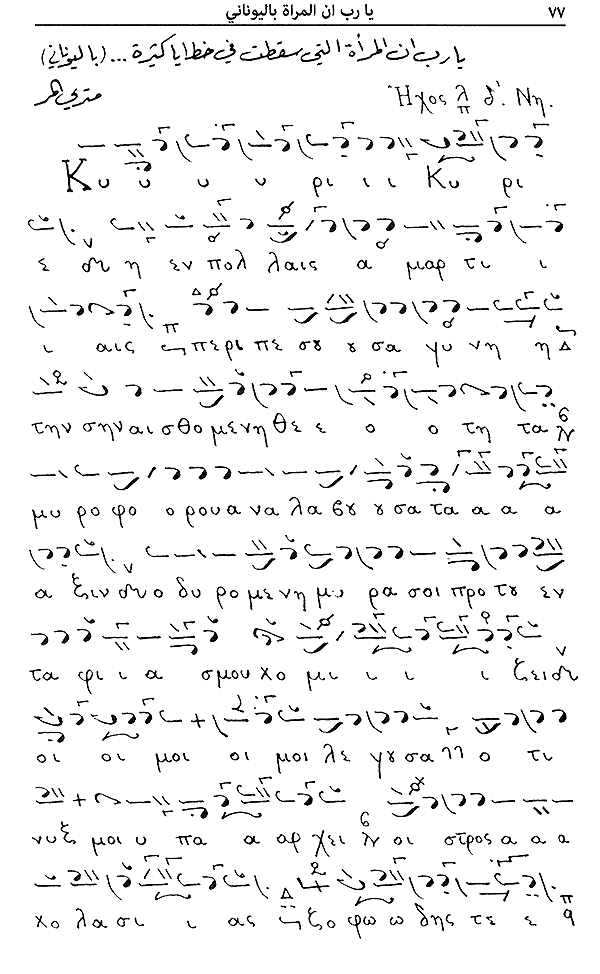 ٧٧ يا رب ان المراة باليوناني
يا رب ان المرأة التي سقطت في خطايا كثيرة ... (باليوناني)
متري المر Ἦχος λ π δ'. Νη.
Κυ υ υ υ ρι ι ι Κυ ρι
ε η εν πολ λαις α μαρ τι ι
ι αις περι πε σȣ ȣ σα γυ νη η Δ
την σην αι σθο με νη θε ε ο ο τη τα
μυ ρο φο ο ρου α να λα βȣ ȣ σα τα α α α
α ξιν ο δυ ρο με νη μυ ρα σοι προ τȣ εν
τα φι ι α σμου κο μι ι ι ι ζει
οι οι μοι οι μοι λε γȣ σα ο τι
νυξ μοι υ πα α αρ χει οι στρος α α α
χο λα σι ι ας ζο φω ω δης τε ε